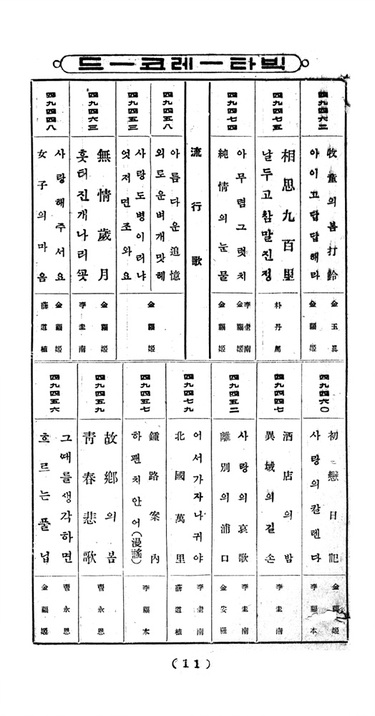 빅타ー레코ー드
四九四六二
牧童의봄打鈴
金玉眞
아이고답답해라
金福姬
四九四七五
相思九百里
날두고참말진정
朴丹馬
四九四七四
아무렴그럿치
李圭南
金福姬
純情의눈물
金福姬
流行歌
四九四五八
아름다운追憶
외도운벼개맛헤
四九四五三
사랑도병이러냐
엇저면조와요
金福姬
四九四六三
無情歲月
흣터진개나리꼿
李圭南
四九四四八
사랑해주서요
金福姬
女子의마음
薛道植
四九四六〇
初戀日記
金福姬
사랑의칼렌다
李福本
四九四四七
酒店의밤
異域의길손
李圭南
四九四五二
사랑의哀歌
李圭南
離別의浦口
金安羅
四九四七九
어서가자나귀야
李圭南
北國萬里
薛道植
四九四五七
鍾路案内
하펜치안어(漫謠)
李福本
四九四五九
故鄕의봄
靑春悲歌
曺永恩
四九四五六
그때를생각하면
曺永恩
흐르는풀닙
金福姬
(11)